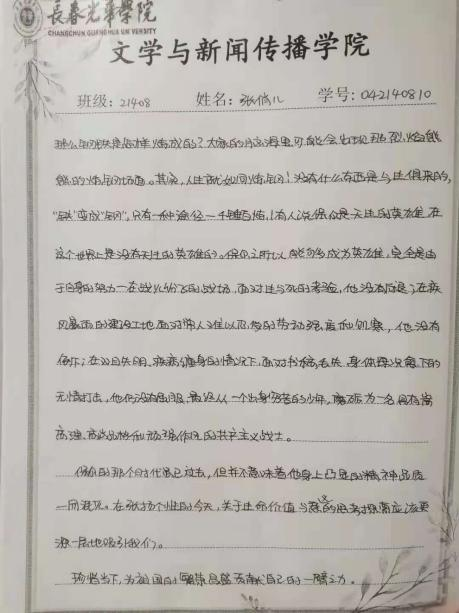 長春光華學院
CHANGCHUN GUANGHUA UNIVERSITY
文学与新闻传播学院
班级：21408 姓名：张倩儿 学号：042140810
那么钢铁是怎样炼成的？大家的脑海里可能会出现热烈，熊熊
燃的炼钢场面。其实，人生就如同炼钢！没有什么东西是与生俱来的，
“铁”变成“钢”，只有一种途径一千锤百炼！有人说保尔是天生的英雄，在
这个世界上是没有天生的英雄的。保尔之所以能够成为英雄，完全是由
于自身的努力一在战火纷飞的战场，面对生与死的考验，他没有后退；在疾
风暴雨的建设工地面对常人难以忍受的劳动强度和饥寒，他没有
倒下；在双目失明、疾病缠身的情况下，面对书稿丢失、身体状况愈下的
无情打击，他仍没有屈服，最终从一个出身穷苦的少年，磨砺为一名具有崇
高理、高尚品格和顽强作风的共产主义战士。
保尔的那个时代虽已过去，但并不意味着他身上凸显的精神品质
一同湮灭。在张扬个性的今天，关于生命价值与意义的思考探索应该更
深一层地吸引我们。
珍惜当下，为祖国的繁荣昌盛贡献自己的一臂之力。